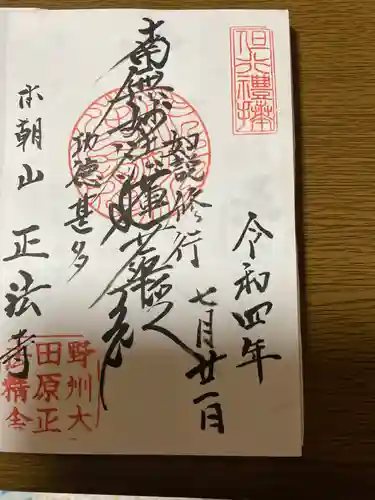 令和四年
七月廿一日
如説修行
南無妙法蓮華経
功徳甚多
本朝山 正法寺
野州大
田原正
精舎